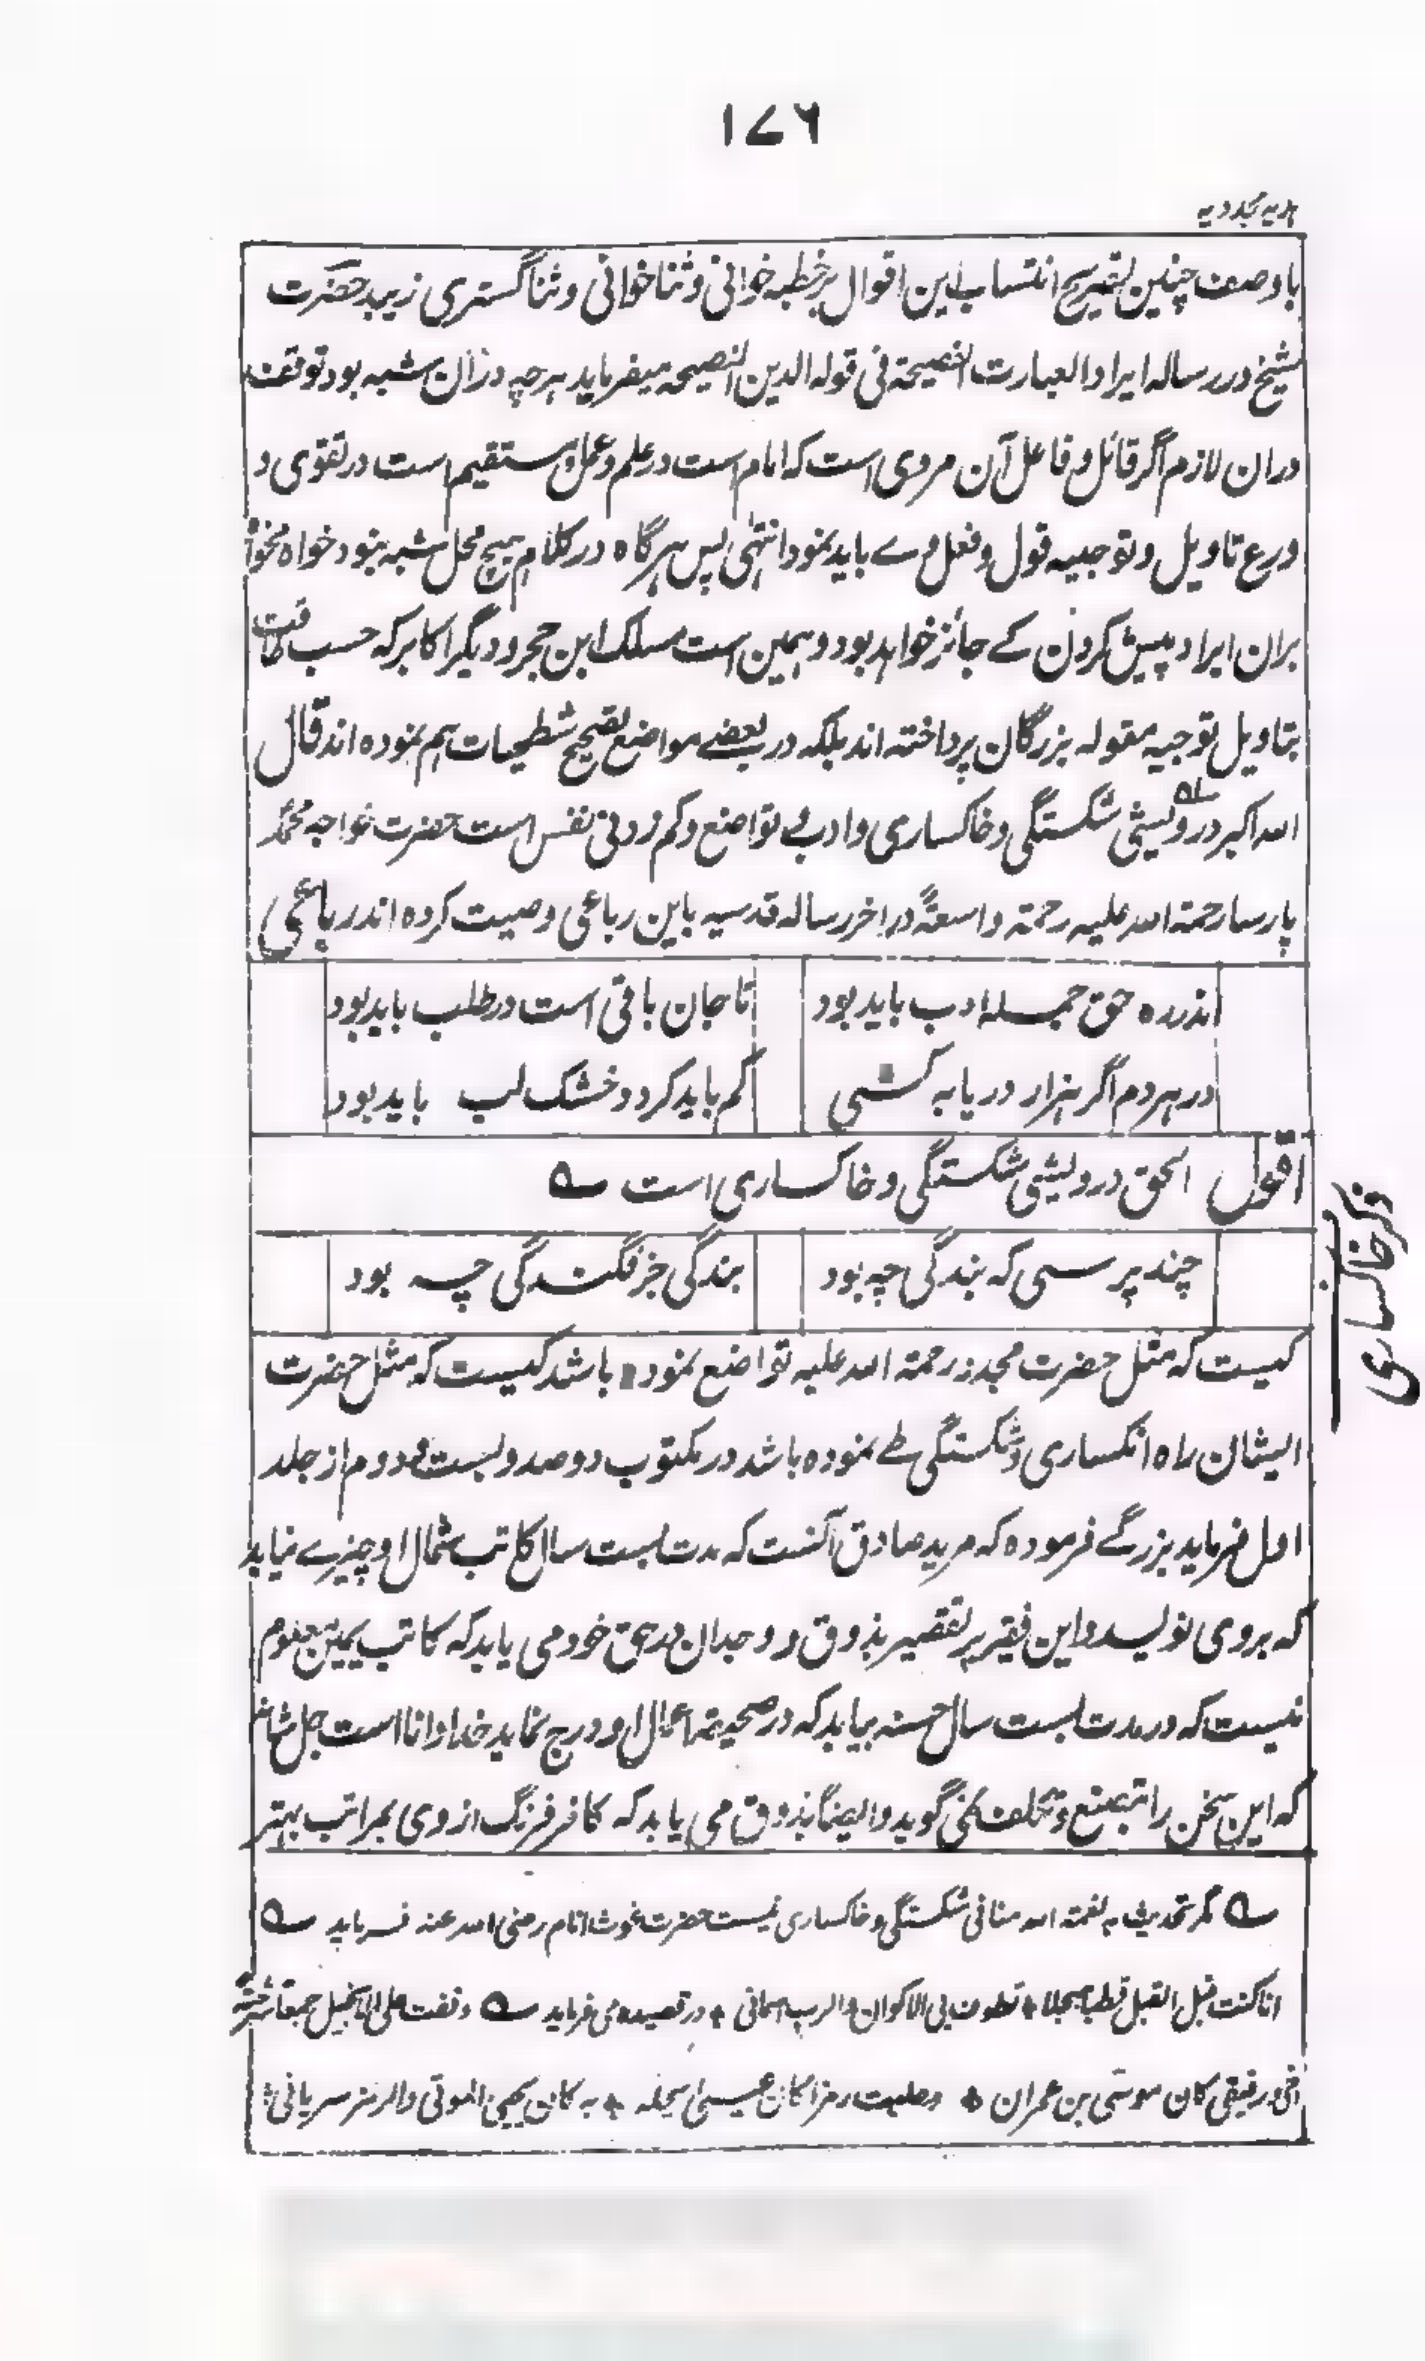 ۱۷۶
ہدیہ مجددیہ
باوصف چنین تصریح انتساب این اقوال بر خطبہ خوانی و ثنا خوانی و ثنا گستری زیبد حضرت
شیخ در رسالہ ایراد العبارت الفصیحۃ فی قولہ الدین النصیحہ میفرماید ہر چہ در ان شبہ بود توقف
در ان لازم اگر قائل و فاعل آن مردی است کہ امام است در علم و عمل و مستقیم است در تقوی و
ورع تاویل و توجیہ قول و فعل وے باید نمود انتہی پس ہرگاہ در کلام ہیچ محل شبہ بنود خواہ مخواہ
بران ایراد پیش کردن کے جائز خواہد بود و ہمین است مسلک ابن حجر و دیگر اکابر کہ حسب طاقت
بتاویل توجیہ مقولہ بزرگان پرداختہ اند بلکہ در بعضے مواضع تصحیح شطحیات ہم نمودہ اند قال
اللہ اکبر درویشی شکستگی و خاکساری و ادب و تواضع و کم زدنی نفس است حضرت خواجہ محمد
پارسا رحمتہ اللہ علیہ رحمتہ واسعۃً در اخر رسالہ قدسیہ باین رباعی وصیت کردہ اند رباعی
اندر رہ حق جملہ ادب باید بود تا جان باقی است در طلب باید بود
در ہر دم اگر ہزار دریا بہ کشی کم باید کرد و خشک لب باید بود
اقول الحق درویشی شکستگی و خاکساری است ؎
ذکر خاکساری
چند پرسی کہ بندگی چہ بود بندگی جز فگندگی چہ بود
کیست کہ مثل حضرت مجدد رحمتہ اللہ علیہ تواضع نمودہ باشد کیست کہ مثل حضرت
ایشان راہ انکساری و شکستگی طے نمودہ باشد در مکتوب دوصد و بست و دوم از جلد
اول فرماید بزرگے فرمودہ کہ مرید صادق آنست کہ مدت بست سال کاتب شمال او چیزے نیابد
کہ بروی نویسد و این فقیر پر تقصیر بذوق و وجدان در حق خود می یابد کہ کاتب یمین معلوم
نیست کہ در مدت بست سال حسنہ بیابد کہ در صحیفہ اعمال او درج نماید خدا دانا است جل شانہ
کہ این سخن را بتصنع و تکلف نمی گوید و ایضاً بذوق می یابد کہ کافر فرنگ از وی بمراتب بہتر
؎ مگر تحدیث بہ نعمتہ اللہ منافی شکستگی و خاکساری نیست حضرت غوث انام رضی اللہ عنہ فرماید ؎
انا کنت قبل القبل قطبا مبجلا * تطوف بی الاکوان والرب اسمانی * در قصیدہ می فرماید ؎ وقفت علی الانجیل
رفیقی کان موسی بن عمران * رمزا کان عیسی یحلہ * بہ کان یحیی الموتی والرمز سریانی